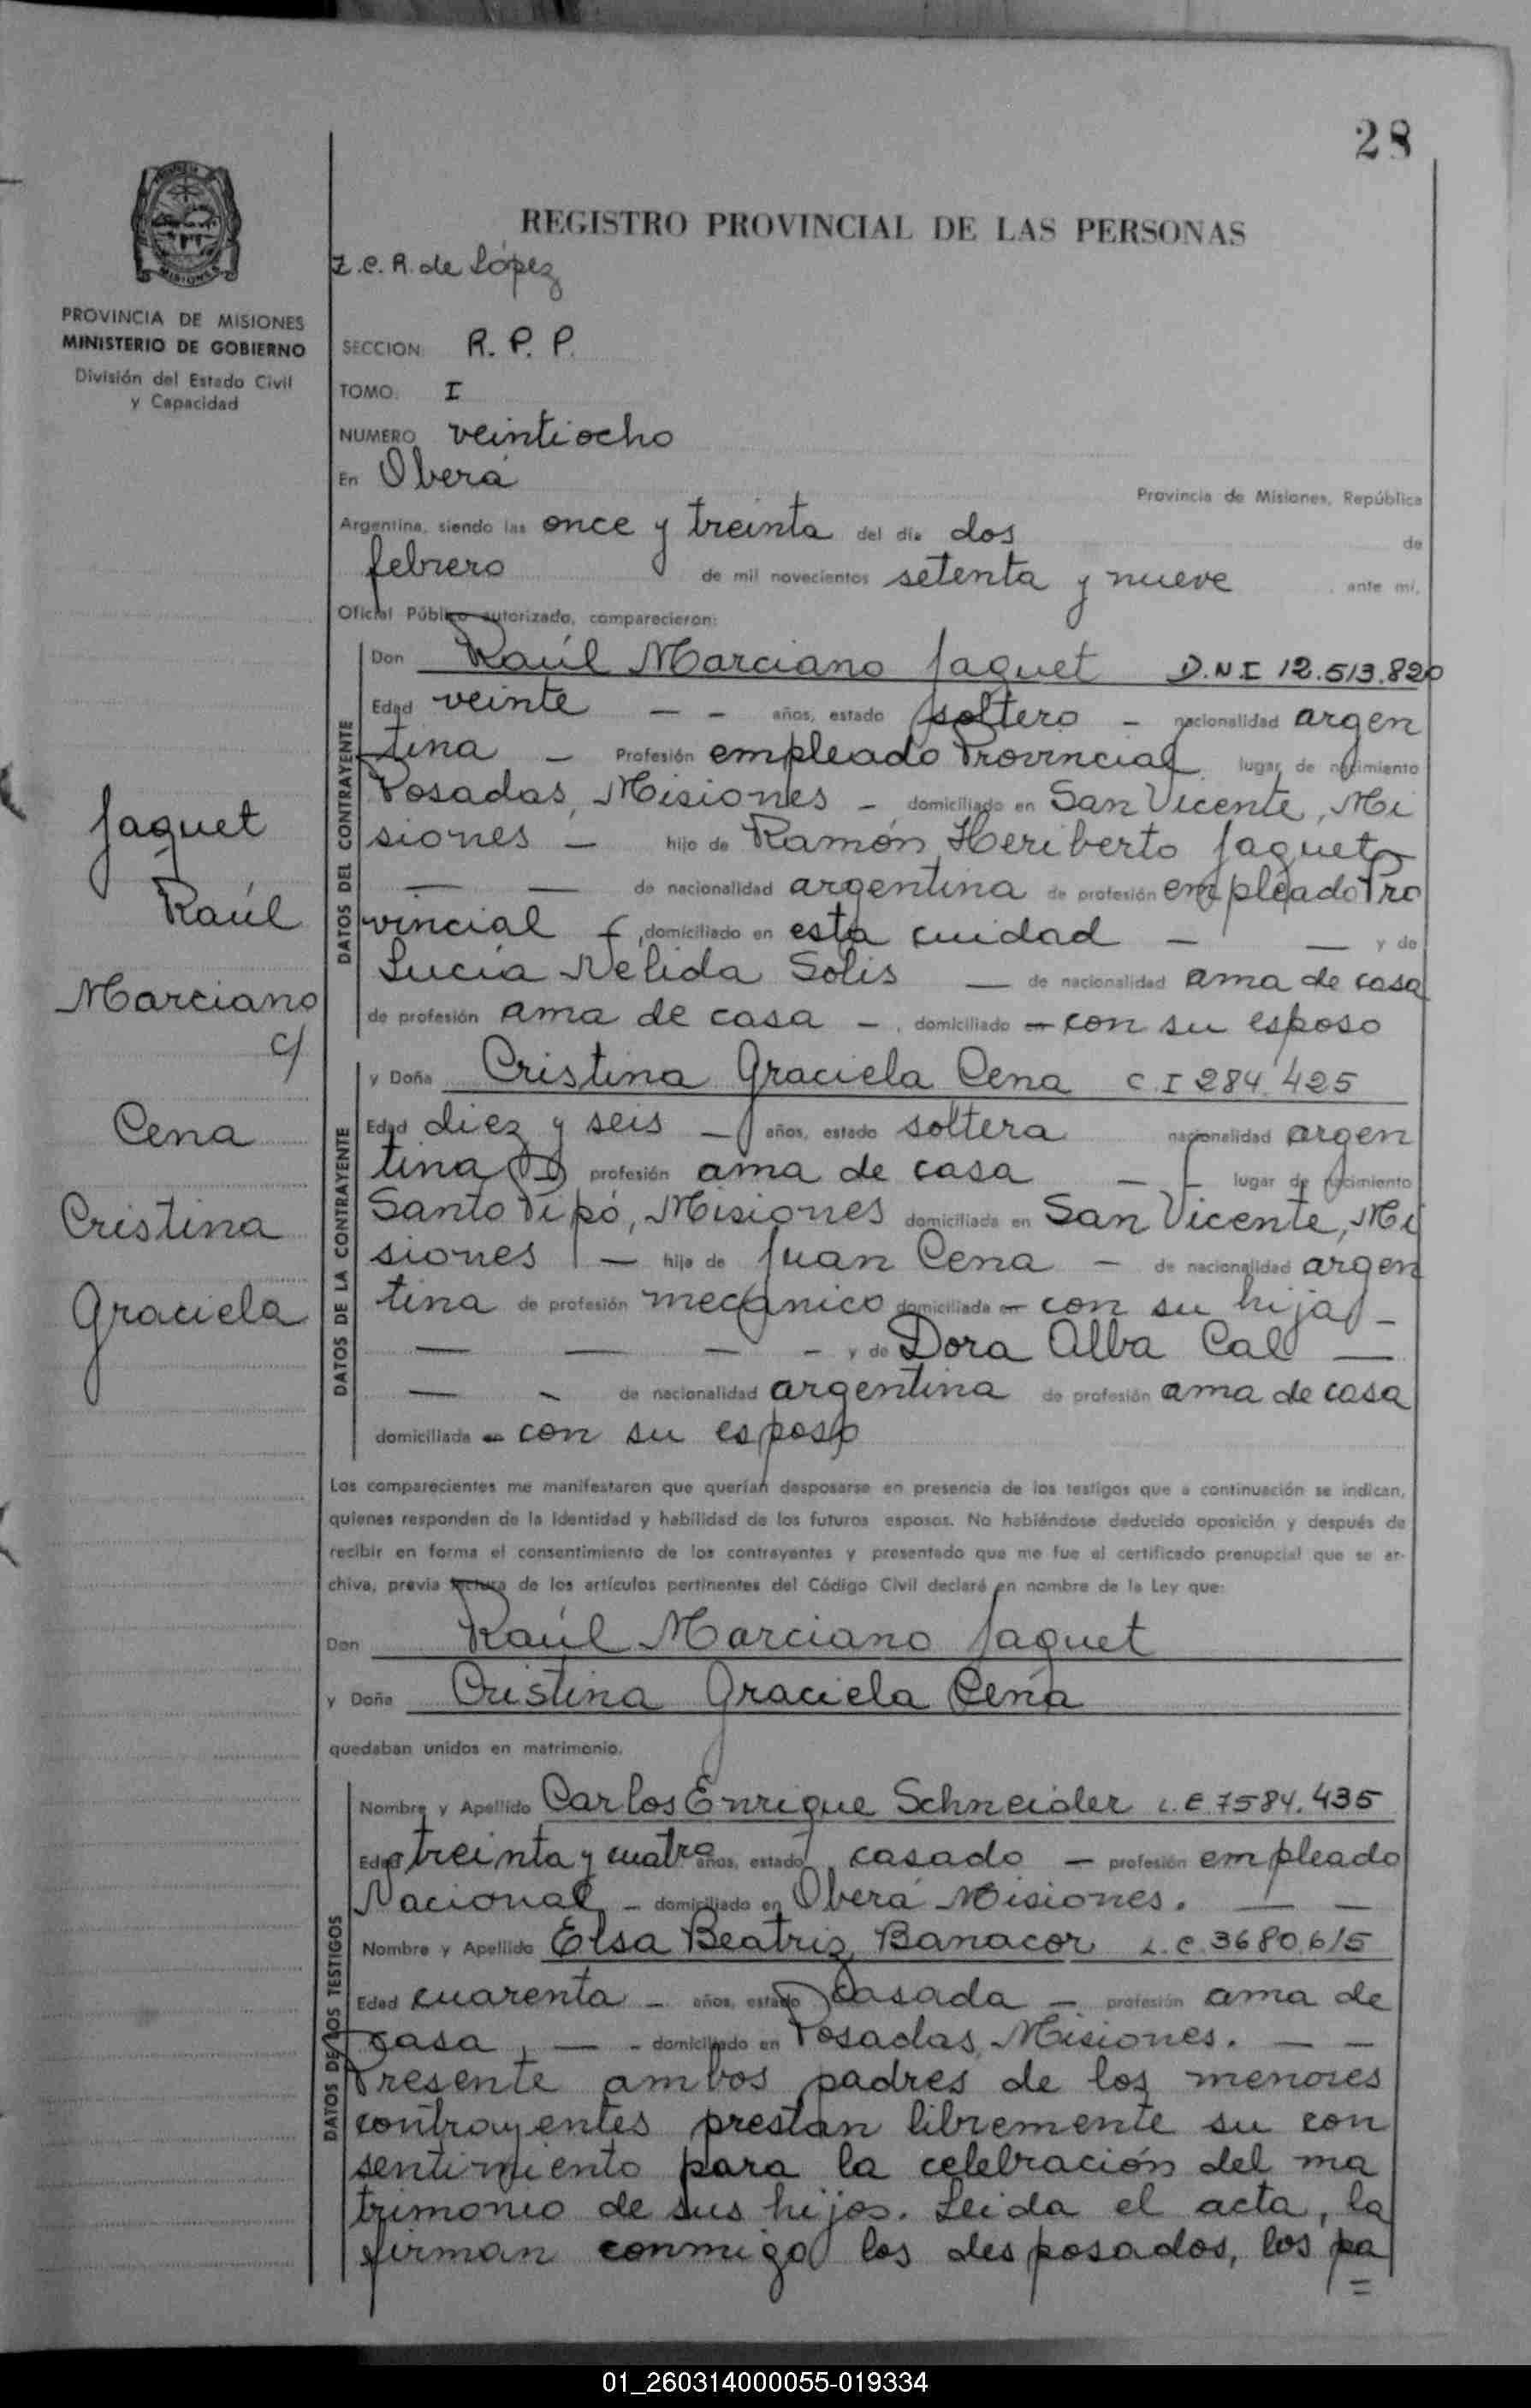 28
MISIONES
PROVINCIA DE MISIONES
MINISTERIO DE GOBIERNO
División del Estado Civil
y Capacidad
Jaquet
Raúl
Marciano
c/
Cena
Cristina
Graciela
REGISTRO PROVINCIAL DE LAS PERSONAS
Z.C.R. de López
SECCION R.P.P.
TOMO I
NUMERO veintiocho
En Oberá
Provincia de Misiones, República
Argentina, siendo las once y treinta del día dos de
febrero de mil novecientos setenta y nueve, ante mí,
Oficial Público autorizado, comparecieron:
DATOS DEL CONTRAYENTE
Don Raúl Marciano Jaquet D.N.I 12.513.820
Edad veinte — - años, estado soltero - nacionalidad argen
tina - Profesión empleado Provincial lugar de nacimiento
Posadas, Misiones - domiciliado en San Vicente, Mi
siones - hijo de Ramón Heriberto Jaquet
— — de nacionalidad argentina de profesión empleado Pro
vincial -, domiciliado en esta cuidad - — y de
Lucía Nelida Solis — de nacionalidad ama de casa
de profesión ama de casa -, domiciliado en con su esposo
DATOS DE LA CONTRAYENTE
y Doña Cristina Graciela Cena C.I 284.425
Edad diez y seis - años, estado soltera nacionalidad argen
tina profesión ama de casa — - lugar de nacimiento
Santo Pipó, Misiones domiciliada en San Vicente, Mi
siones - hija de Juan Cena - de nacionalidad argen
tina de profesión mecánico domiciliada en con su hija -
— — - - y de Dora Alba Cal —
— - de nacionalidad argentina de profesión ama de casa
domiciliada en con su esposo
Los comparecientes me manifestaron que querían desposarse en presencia de los testigos que a continuación se indican,
quienes responden de la identidad y habilidad de los futuros esposos. No habiéndose deducido oposición y después de
recibir en forma el consentimiento de los contrayentes y presentado que me fue el certificado prenupcial que se ar-
chiva, previa lectura de los artículos pertinentes del Código Civil declaré en nombre de la Ley que:
Don Raúl Marciano Jaquet
y Doña Cristina Graciela Cena
quedaban unidos en matrimonio.
DATOS DE LOS TESTIGOS
Nombre y Apellido Carlos Enrique Schneider L.E. 7584.435
Edad treinta y cuatro años, estado casado - profesión empleado
Nacional - domiciliado en Oberá Misiones. — —
Nombre y Apellido Elsa Beatriz Banacor L.C. 3680.615
Edad cuarenta - años, estado casada - profesión ama de
casa, — - domiciliado en Posadas, Misiones. — —
Presente ambos padres de los menores
contrayentes prestan libremente su con
sentimiento para la celebración del ma
trimonio de sus hijos. Leida el acta, la
firman conmigo los desposados, los pa
=
01_260314000055-019334